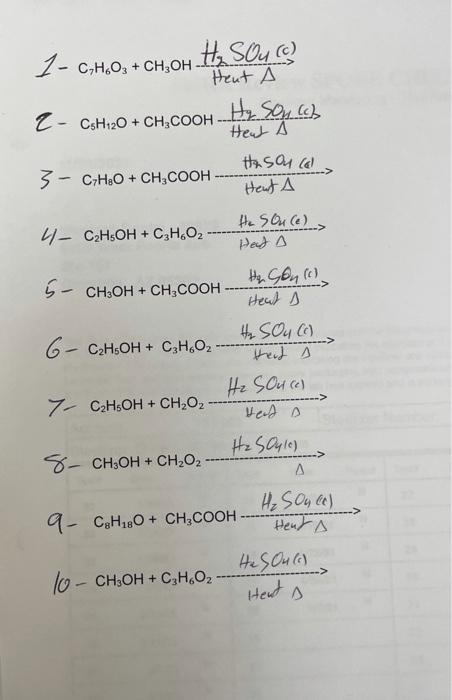 H₂SO₄(c)
1- C₇H₆O₃ + CH₃OH ------------>
Heat Δ
H₂SO₄(c)
2- C₅H₁₂O + CH₃COOH ------------>
Heat Δ
H₂SO₄(c)
3- C₇H₈O + CH₃COOH ------------>
Heat Δ
H₂SO₄(c)
4- C₂H₅OH + C₃H₆O₂ ------------>
Heat Δ
H₂SO₄(c)
5- CH₃OH + CH₃COOH ------------>
Heat Δ
H₂SO₄(c)
6- C₂H₅OH + C₃H₆O₂ ------------>
Heat Δ
H₂SO₄(c)
7- C₂H₅OH + CH₂O₂ ------------>
Heat Δ
H₂SO₄(c)
8- CH₃OH + CH₂O₂ ------------>
Δ
H₂SO₄(c)
9- C₈H₁₈O + CH₃COOH ------------>
Heat Δ
H₂SO₄(c)
10- CH₃OH + C₃H₆O₂ ------------>
Heat Δ